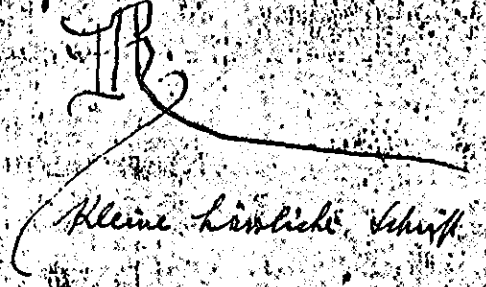 Kleine hässliche Schrift